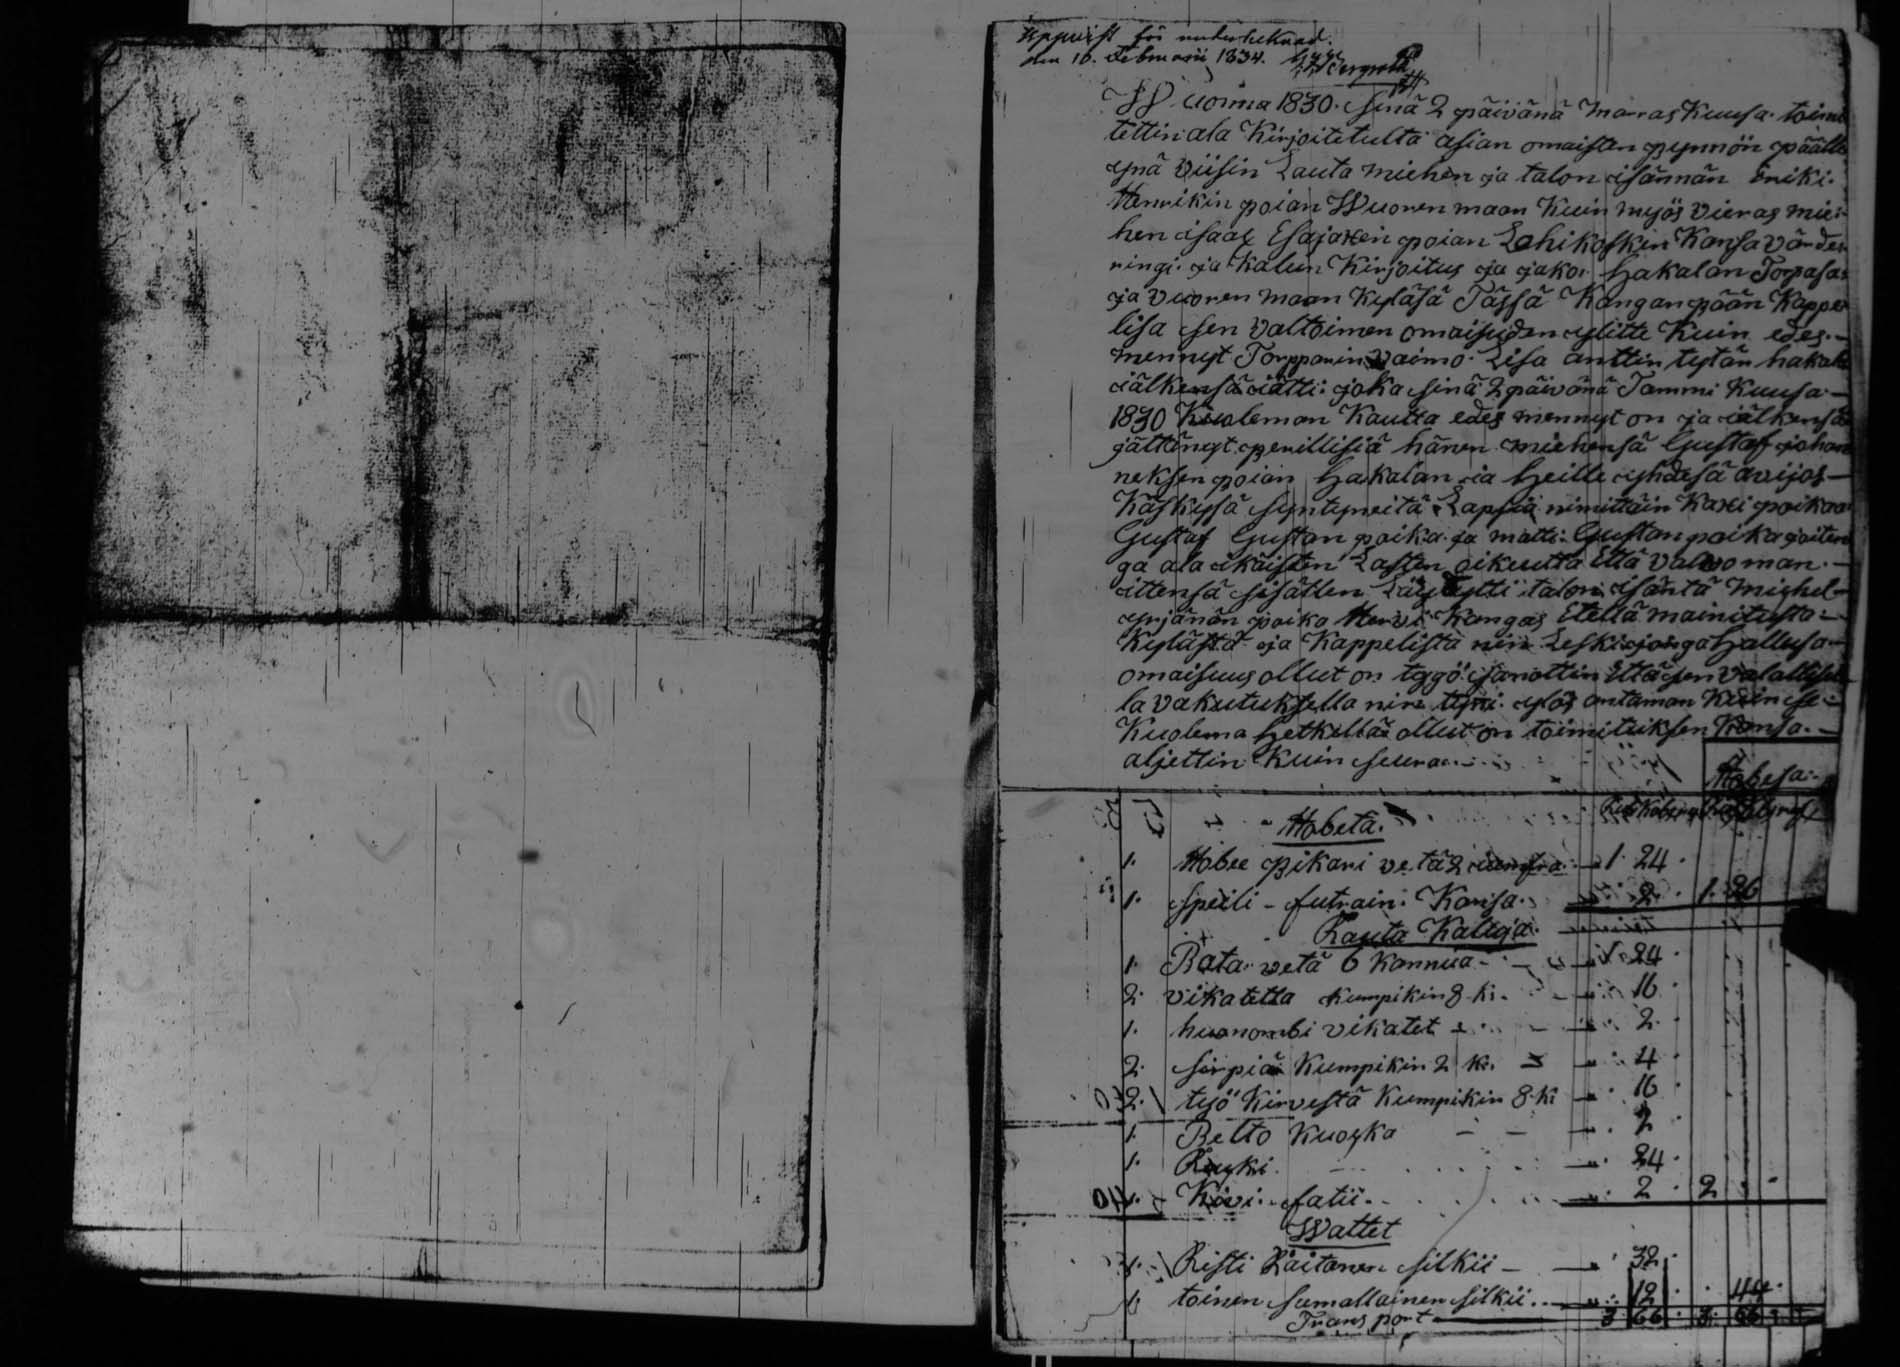 Uppvist för undertecknad.
den 16. Februarii 1834.
Wuonna 1830. sinä 2 päivänä Marras Kuusa. toimi
tettin ala Kirjoitetulta asian omaisten pynnön päälle
ynä viisin Lauta miehen ja talon isännän eriki.
Henrikin poian Wuoren maan Kuin myös vieras mie-
hen isaac Esajaxen poian Lahikoskin Kansa värde-
ringi. ja Kalun Kirjoitus ja jako. Hakalan Torpasa
ja vuoren maan Kyläsä Tässä Kangan pään Kappe
lisa sen valtoimen omaisuden ylitte Kuin edes.-
mennyt Torpparin vaimo. Lisa anttin tytär hakala
iälkensä iätti: joka sinä 2 päivänä Tammi Kuusa.-
1830 Kuoleman Kautta edes mennyt on ja iälkensä
jättänyt perillisiä hänen miehensä Gustaf johan
neksen poian Hakalan ia Heille yhdesä avijos-
Käskysä syntyneitä Lapsia nimittäin Kaxi poikaa
Gustaf Gustan poika. ja matti: Gustan poika joiten
ga ala ikäisten Lasten oikeutta Että valwoman.-
ittensä sisällen talon isäntä Michel-
yrjänän poika Kangas Etellä mainitusta-
Kylästä ja Kappelista nin Leski jonga Hallusa-
omaisuus ollut on tygö sanottin Että sen valallisel-
la vakutuksella nin ylös antaman Kuin se-
Kuolema Hetkellä ollut on toimituksen Kansa.-
aljettin Kuin seura.-
Hobesa.-
Hobeta.
1. Hobee pikari vetä 2 1. 24.
1. speili - futrain. Kansa. 2. 1. 26
Rauta Kaluja.
1. Bata vetä 6 Kannua - 24.
2. vikatetta kumpikin 8 k. - 16.
1. huonombi vikatet - 2.
2. sirpiä Kumpikin 2 k. - 4.
2. työ Kirvestä Kumpikin 8. k. - 16.
1. Belto Kuokka - 2.
1. 24.
1. Kivi. fatii. 2. 2
Wattet
1. Risti Räitanen silkii - 32.
1. toinen samallainen silkii. 12. 44.
Transport 3 66. 3. 66